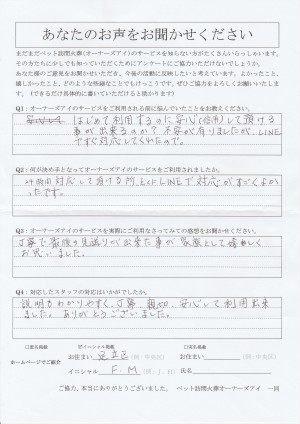 あなたのお声をお聞かせください
まだまだペット訪問火葬(オーナーズアイ)のサービスを知らない方がたくさんいらっしゃいます。
そのかたに少しでも知っていただくためにアンケートにご協力いただけないでしょうか。
あなた様のご意見をお聞かせいただき、今後の活動に反映したいと考えています。よかったこと、
嬉しかったこと、どのような些細なことでもけっこうです。ぜひご協力をよろしくお願いいたしま
す。(できるだけ具体的に書いていただけると助かります)
Q1:オーナーズアイのサービスをご利用される前に悩んでいたことをお教えください。
はじめて利用するのに安心(信用)して頂ける
事が出来るのかで不安が有りましたが、LINE
ですぐ対応してくれたので。
Q2:何が決め手となってオーナーズアイのサービスをご利用されましたか。
対応して頂ける所とLINEで対応がすごくよか
ったです。
Q3:オーナーズアイのサービスを実際にご利用なさってみての感想をお聞かせください。
丁寧で最後の見送りが出来た事が家族として嬉しく
お思いました。
Q4:対応したスタッフの対応はいかがでしたか。
説明もわかりやすく、丁寧、親切、安心して利用出来
ました。ありがとうございました。
ホームページでご紹介
□実名掲載
☑イニシャル掲載
□匿名掲載
お住まい 足立区 (例:中央区)
お住まい (例:中央区)
イニシャル F.M (例:J.H)
ご協力、本当にありがとうございました。 ペット訪問火葬オーナーズアイ 一同